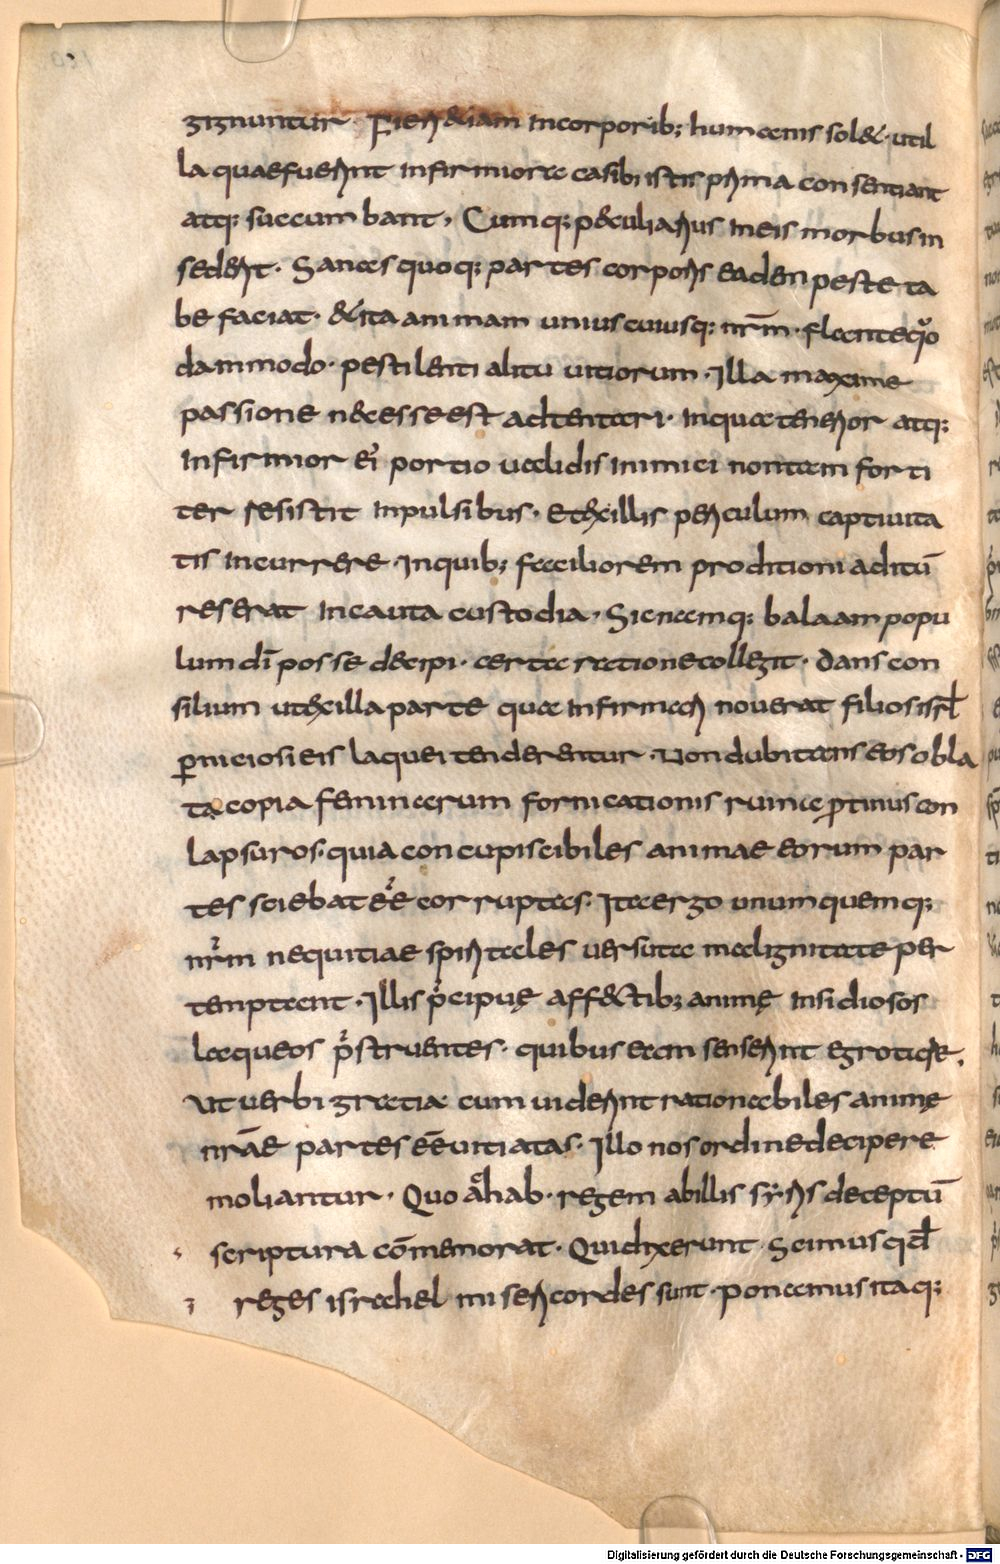 gignuntur. Fieri &iam incorporib; humanis sol&. ut il
la quae fuerint infirmiora casib; istis prima consentiant
atq; succumbant. Cumq; p&culiarius in eis morbus in
sederit. Sanas quoq; partes corporis eadem peste ta
be faciat. & ita animam uniuscuiusq; nr̄m. flante quo
dammodo. pestilenti alitu uitiorum. Illa maxime
passione n&esse est adtentari. In qua tenerior atq;
infirmior ei' portio ualidis inimici non tam forti
ter resistit inpulsibus. Et ex illis periculum captiuita
tis incurrere. In quib; faciliorem proditioni aditū
reserat incauta custodia. Sic namq; balaam popu
lum dī posse decipi. certa ratione collegit. dans con
silium ut ex illa parte qua infirmari nouerat filios isrl
p̱niciosi eis laquei tenderentur. Non dubitans eos obla
ta copia feminarum fornicationis ruina ꝓtinus con
lapsuros. quia concupiscibiles animae eorum par
tes sciebat ēē corruptas. Ita ergo unumquemq;
nr̄m nequitiae spiritales uersuta malignitate per
temptant. Illis p̄cipuę aff&tib; animę insidiosos
laqueos p̄struentes. quibus eam senserint egrotare.
Ut uerbi gratia cum uiderint rationabiles animę
nrāe partes eē uitiatas. Illo nos ordine decipere
moliantur. Quo ahab. regem ab illis syris deceptū
scriptura cōmemorat. Qui dixerunt. Scimus qd
reges israhel misericordes sunt. ponamus itaq;
Digitalisierung gefördert durch die Deutsche Forschungsgemeinschaft - DFG